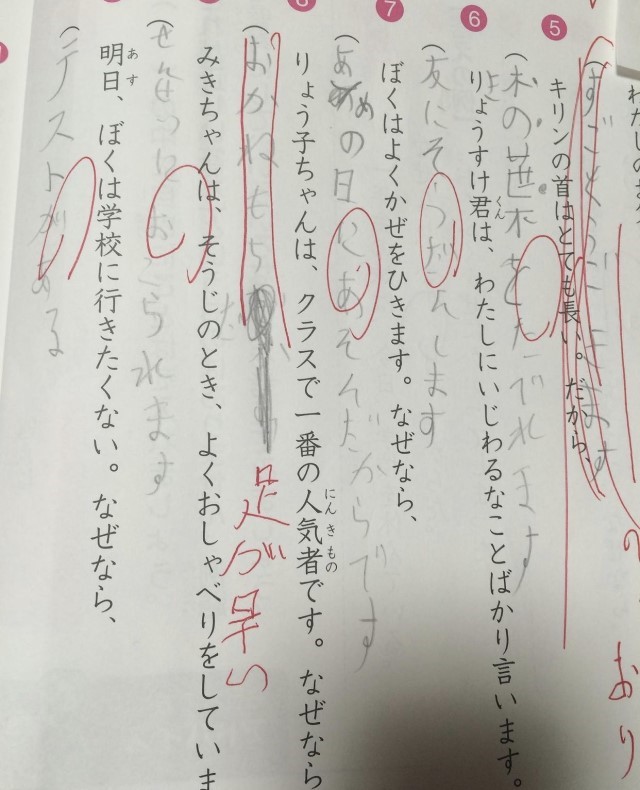 わたしの
5
キリンの首はとても長い。だから、
(木の葉をたべれます
6
りょうすけ君は、わたしにいじわるなことばかり言います。
くん
(友にそうだんします
7
ぼくはよくかぜをひきます。なぜなら、
め の日にあそんだからです
8
りょう子ちゃんは、クラスで一番の人気者です。なぜなら
にんきもの
(おかねもち
足が早い
みきちゃんは、そうじのとき、よくおしゃべりをしていま
おこられます
明日、ぼくは学校に行きたくない。なぜなら、
あす
(テストがある